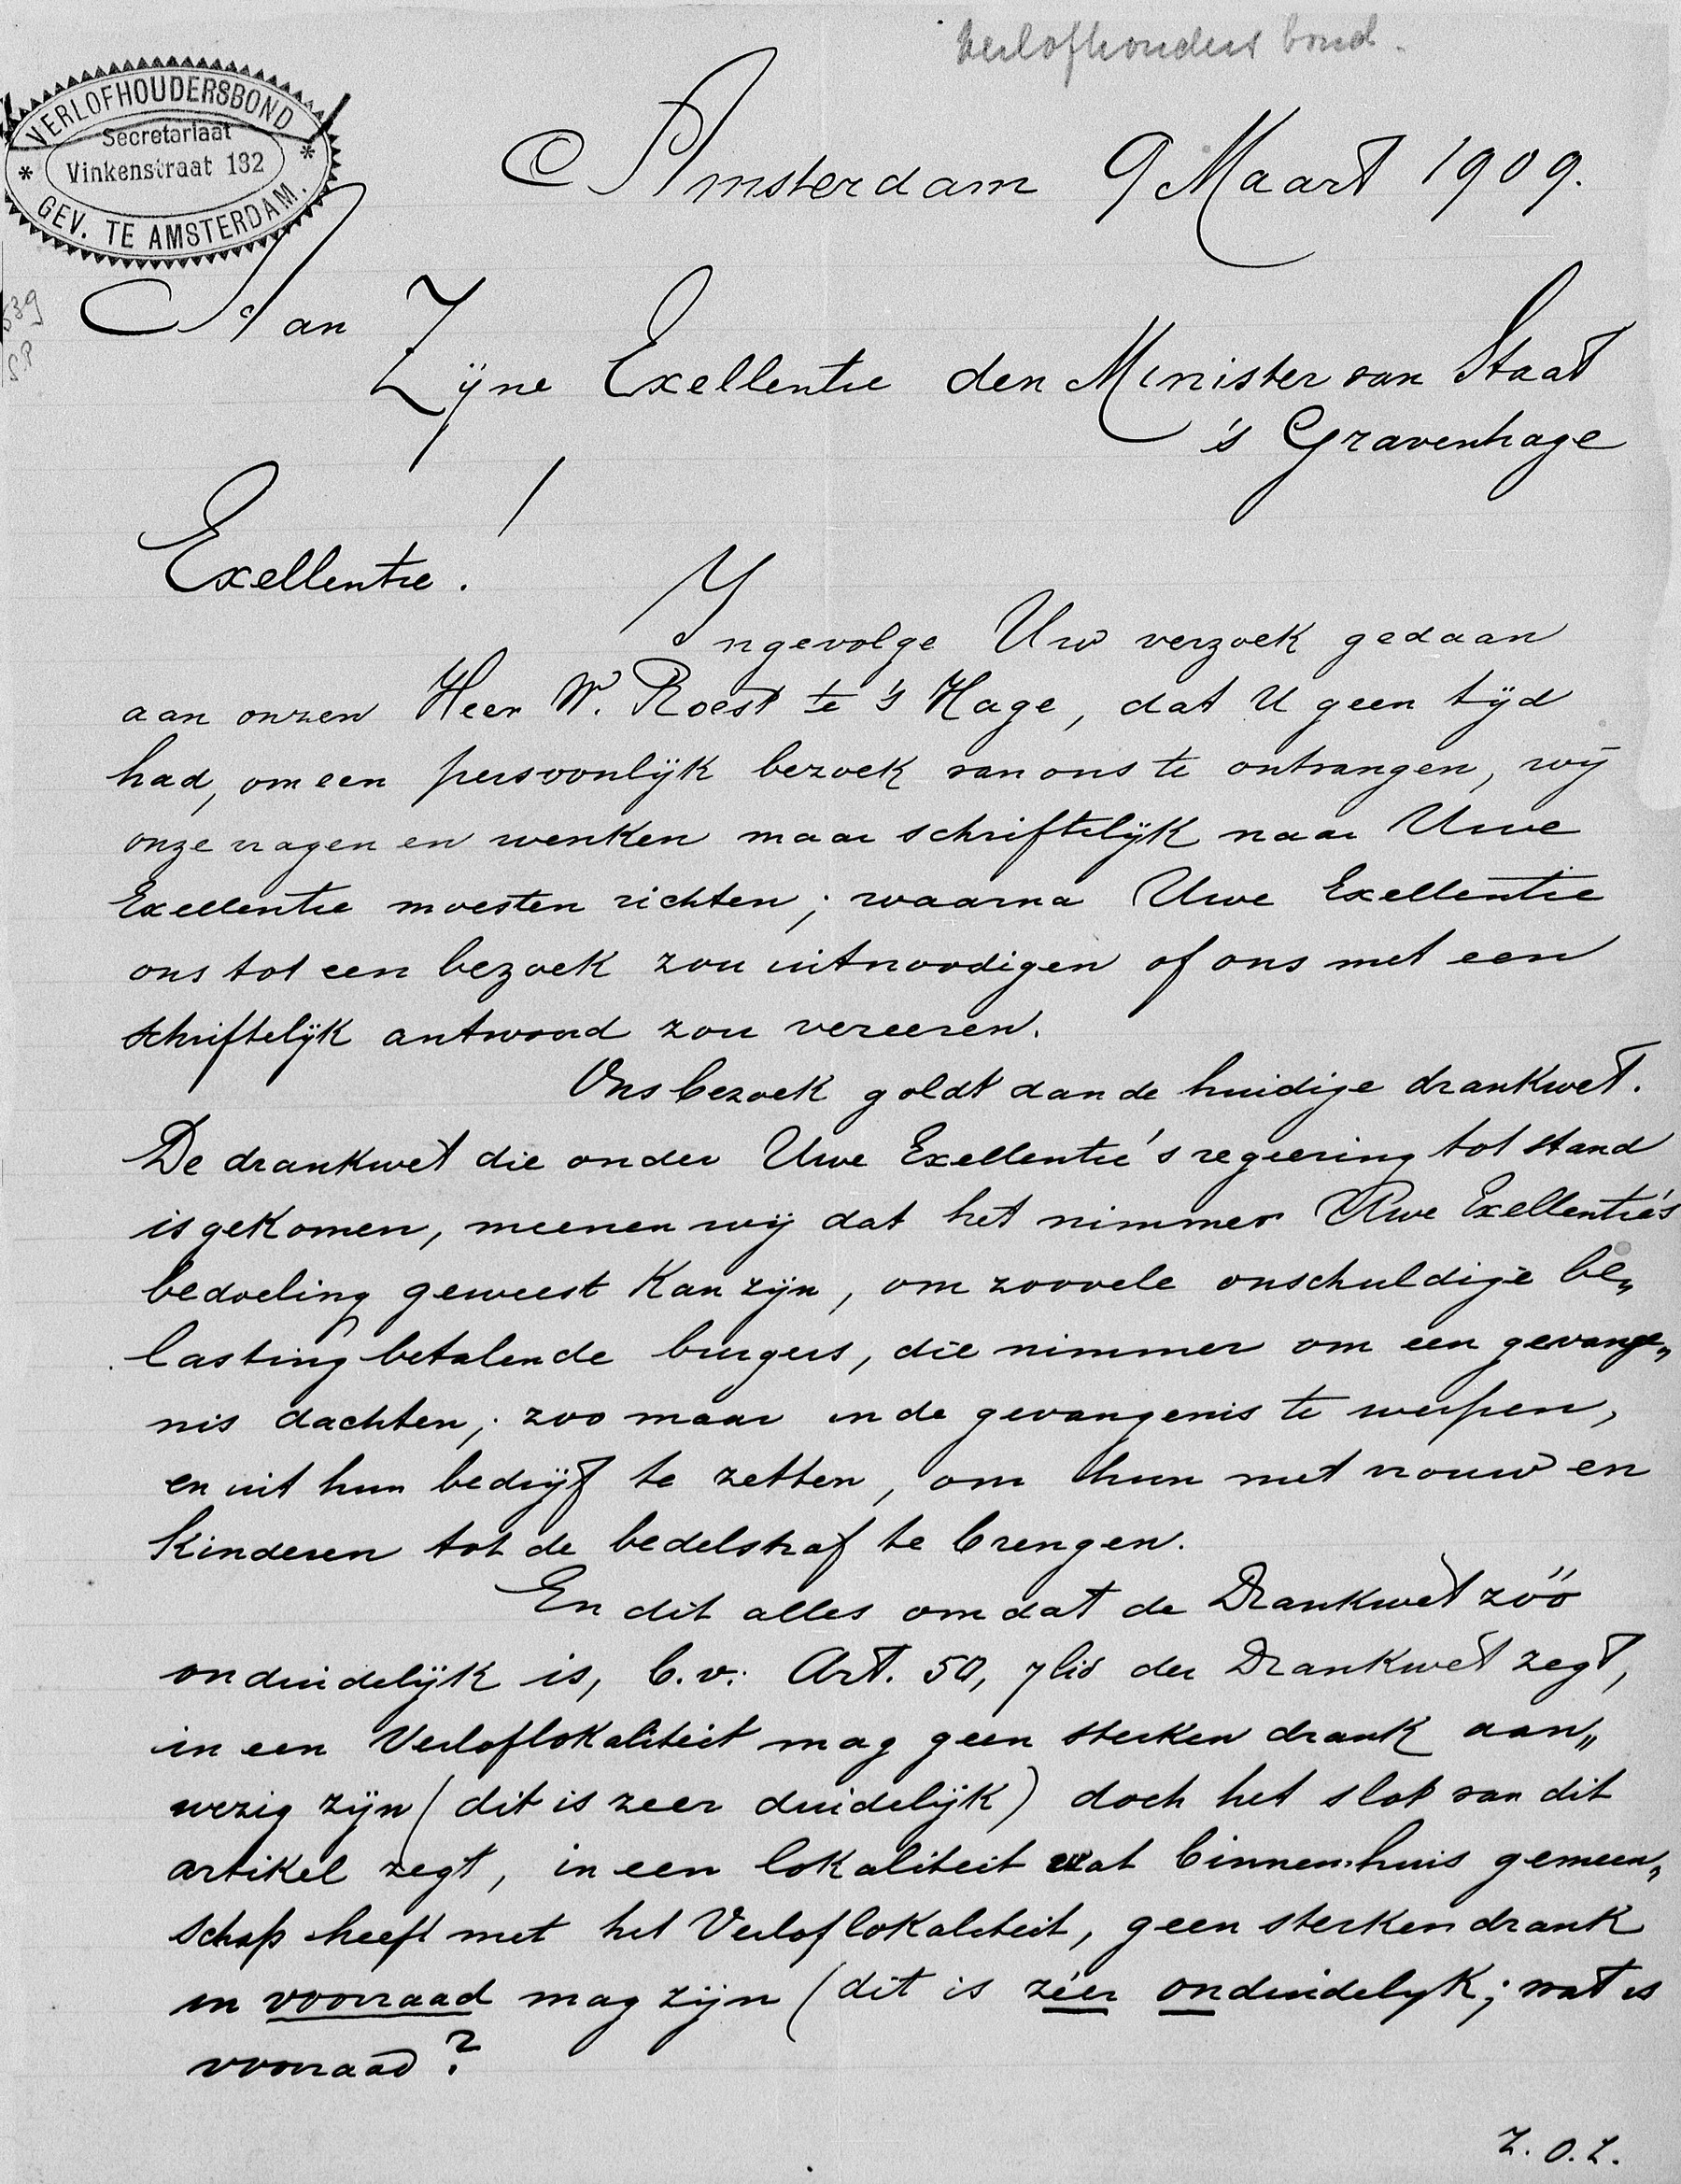 Verlofhouders bond.
VERLOFHOUDERSBOND
Secretariaat
Vinkenstraat 132
GEV. TE AMSTERDAM.
Amsterdam 9 Maart 1909.
539
S.P
Aan
Zijne Exellentie den Minister van Staat
's Gravenhage
Exellentie!
Ingevolge Uw verzoek gedaan
aan onzen Heer W. Roest te 's Hage, dat U geen tijd
had, om een persoonlijk bezoek van ons te ontvangen, wij
onze vragen en wenken maar schriftelijk naar Uwe
Exellentie moesten richten; waarna Uwe Exellentie
ons tot een bezoek zou uitnoodigen of ons met een
schriftelijk antwoord zou vereeren.
Ons bezoek goldt dan de huidige drankwet.
De drankwet die onder Uwe Exellentie's regeering tot stand
is gekomen, meenen wij dat het nimmer Uwe Exellentie's
bedoeling geweest kan zijn, om zoovele onschuldige be„
lasting betalende burgers, die nimmer om een gevange„
nis dachten; zoo maar in de gevangenis te werpen,
en uit hun bedrijf te zetten, om hun met vrouw en
kinderen tot de bedelstraf te brengen.
En dit alles omdat de Drankwet zóó
onduidelijk is, b.v. Art. 50, 7 lid der Drankwet zegt,
in een Verloflokaliteit mag geen sterken drank aan„
wezig zijn (dit is zeer duidelijk) doch het slot van dit
artikel zegt, in een lokaliteit wat binnenshuis gemeen„
schap heeft met het Verloflokaliteit, geen sterken drank
in voorraad mag zijn (dit is zéér onduidelyk; wat is
voorraad?
Z.O.Z.